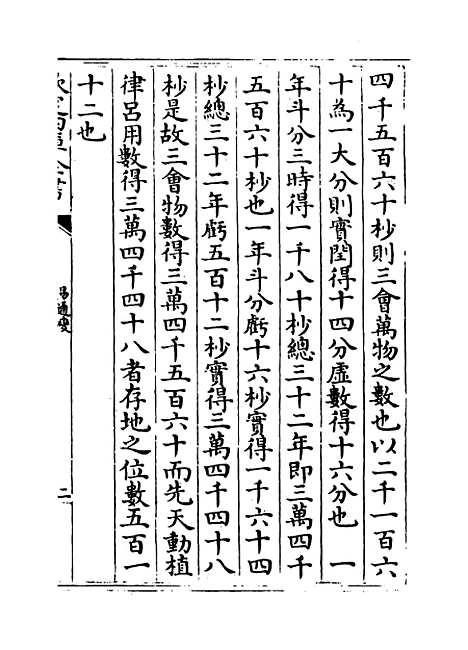 四千五百六十杪則三會萬物之數也以二千一百六
十為一大分則實閏得十四分虛數得十六分也　一
年斗分三時得一千八十杪總三十二年即三萬四千
五百六十杪也一年斗分虧十六杪實得一千六十四
杪總三十二年虧五百十二杪實得三萬四千四十八
杪是故三會物數得三萬四千五百六十而先天動植
律呂用數得三萬四千四十八者存地之位數五百一
十二也
易通變
二